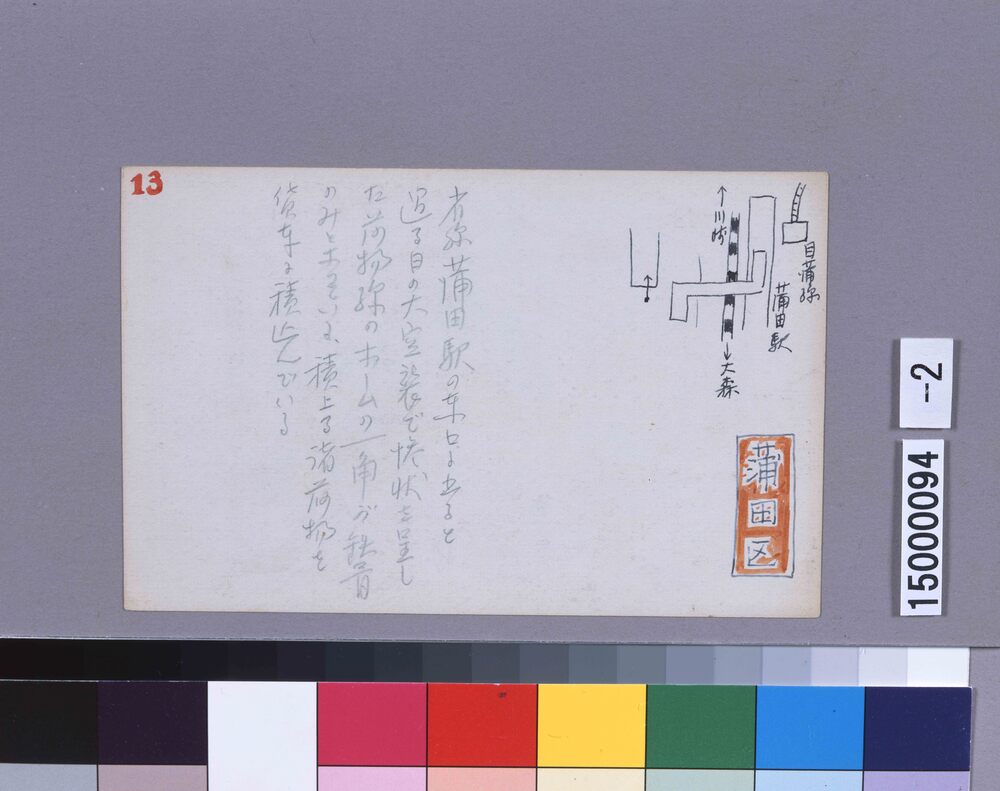 13
↑川崎
目蒲線
蒲田駅
↓大森
蒲田区
省線蒲田駅の東口に出ると
過る日の大空襲で惨状を呈し
た荷物線のホームの一角が鉄骨
のみと
積上る諸荷物を
貨車に積込んでいる
-2
150000094